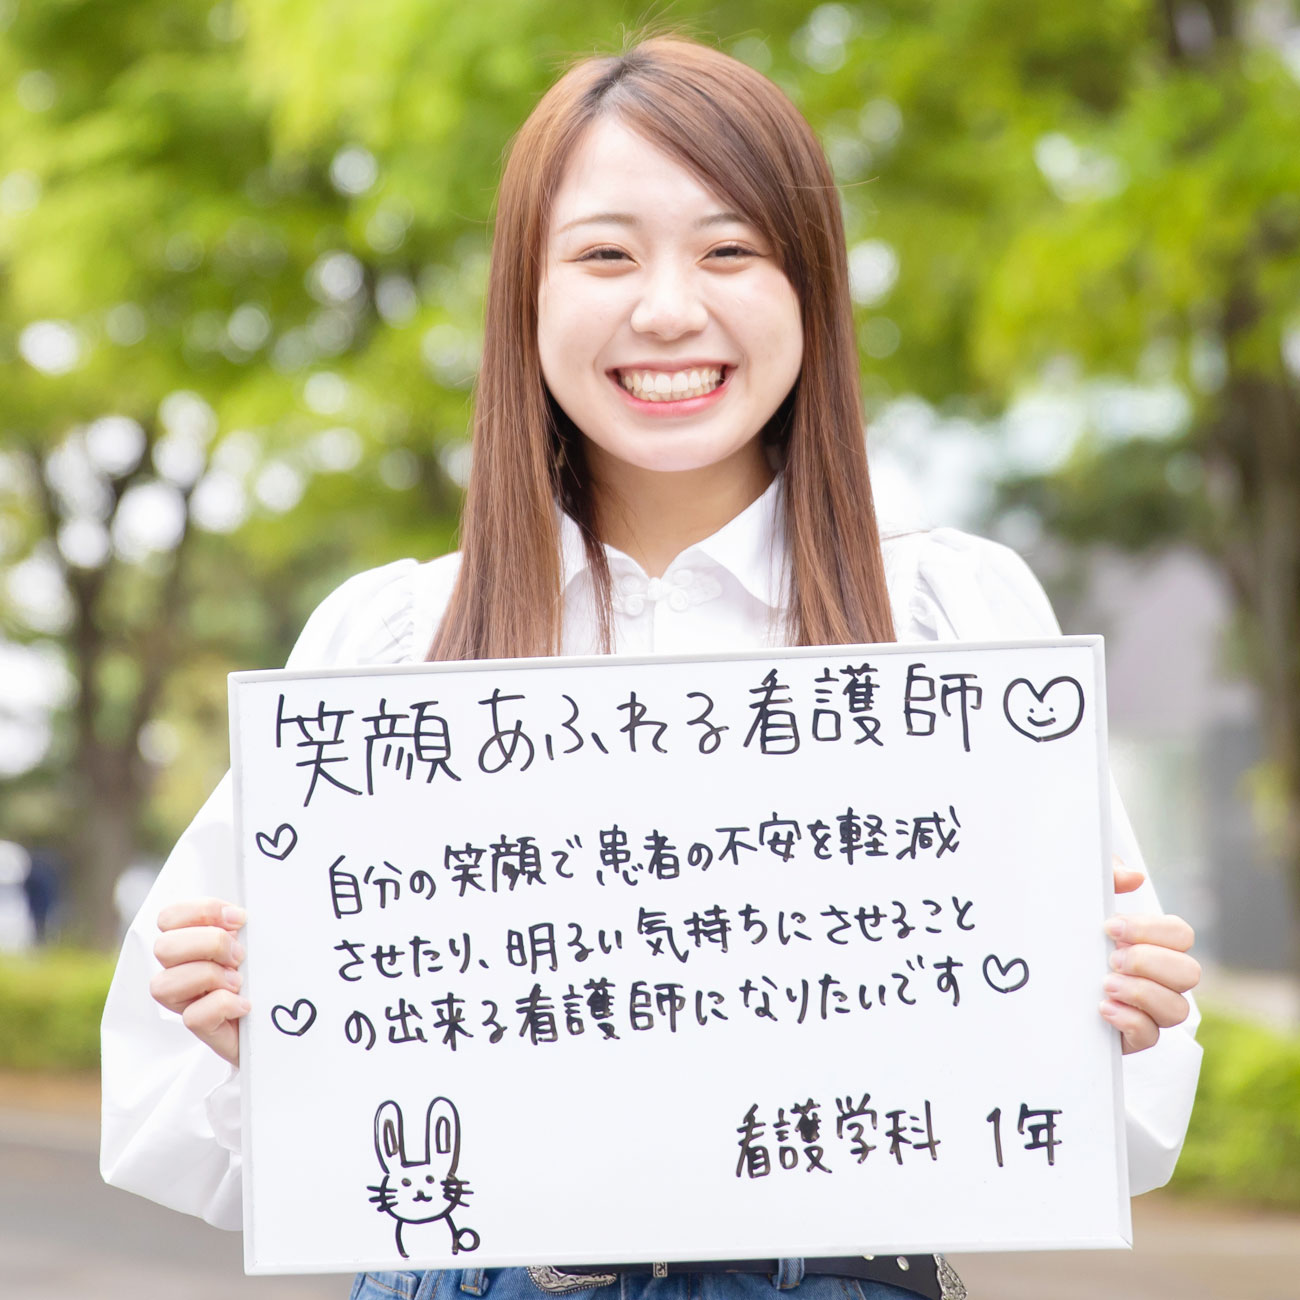 笑顔あふれる看護師
自分の笑顔で患者の不安を軽減
させたり、明るい気持ちにさせること
の出来る看護師になりたいです
看護学科 1年